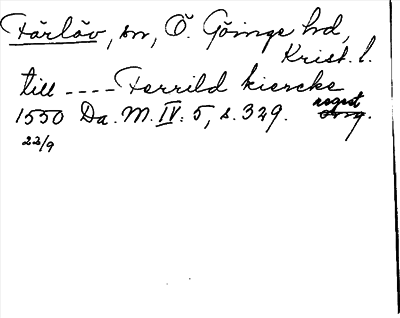 Färlöv, sn, Ö. Göinge hd,
Krist. l.
till ---- Ferrild kiercke
1550 Da. M. IV: 5, s. 329. regest
22/9